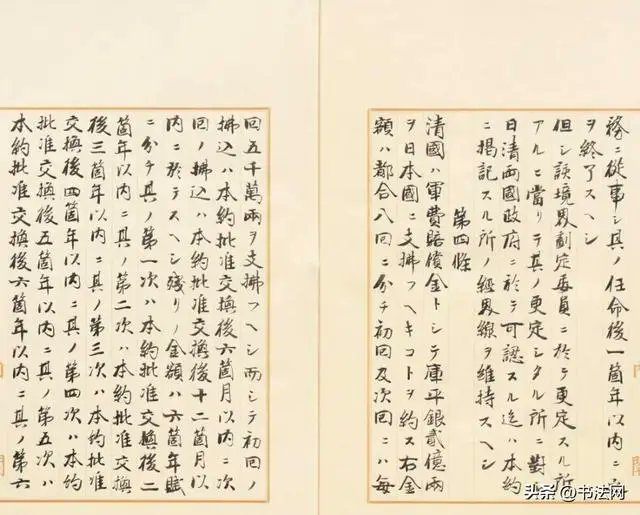 務ニ從事シ其ノ任命後一箇年以内ニ之
ヲ終了スヘシ
但シ該境界劃定委員ニ於テ更定スル所
アルニ當リテ其ノ更定シタル所ニ對シ
日清兩國政府ニ於テ可認スル迄ハ本約
ニ掲記スル所ノ經界線ヲ維持スヘシ
第四條
清國ハ軍費賠償金トシテ庫平銀貳億兩
ヲ日本國ニ支拂フヘキコトヲ約ス右金
額ハ都合八回ニ分チ初回及次回ニハ毎
回五千萬兩ヲ支拂フヘシ而シテ初回ノ
拂込ハ本約批准交換後六箇月以内ニ次
回ノ拂込ハ本約批准交換後十二箇月以
内ニ於テスヘシ殘リノ金額ハ六箇年賦
ニ分チ其ノ第一次ハ本約批准交換後二
箇年以内ニ其ノ第二次ハ本約批准交換
後三箇年以内ニ其ノ第三次ハ本約批准
交換後四箇年以内ニ其ノ第四次ハ本約
批准交換後五箇年以内ニ其ノ第五次ハ
本約批准交換後六箇年以内ニ其ノ第六
头条 @书法网